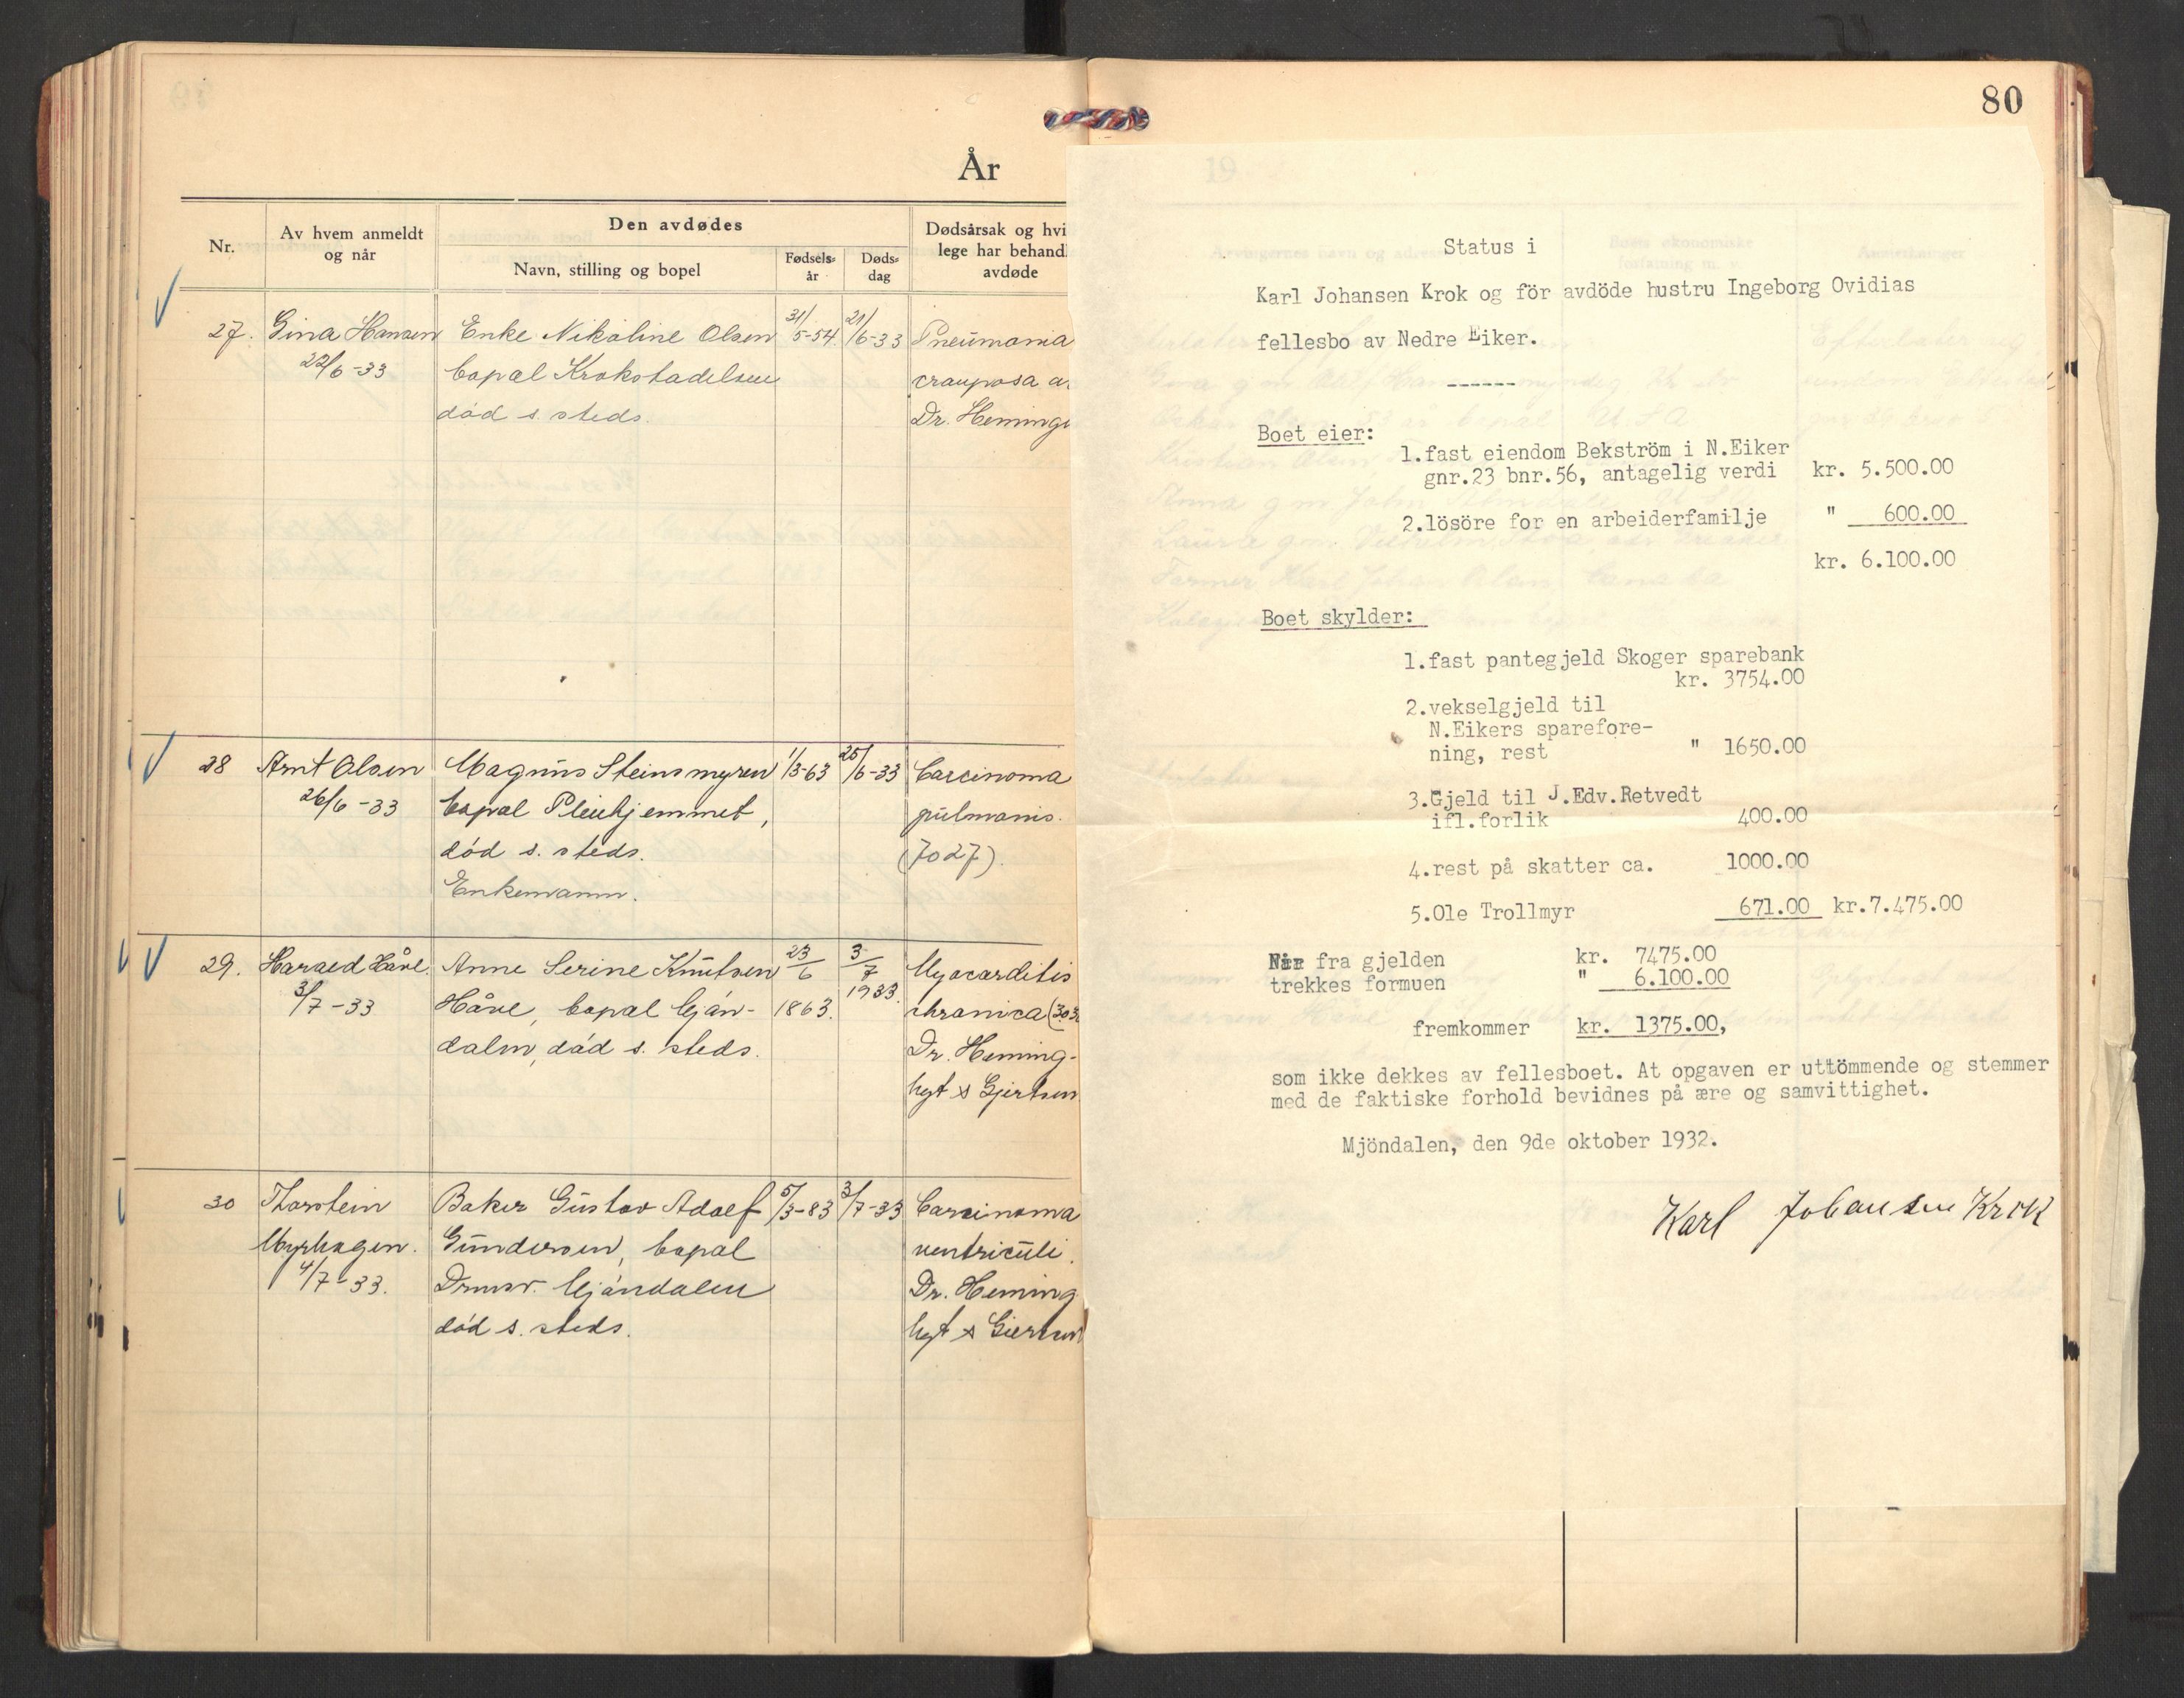 År
Nr.
Av hvem anmeldt
og når
Den avdødes
Navn, stilling og bopel
Fødsels-
år
Døds-
dag
Dødsårsak og hvi
lege har behand
avdøde
27.
Gina Hansen
22/6-33
Enke Nikoline Olsen
bopæl Krokstadelven
død s. steds.
31/5-54
21/6-33
Pneumonia
crouposa
Dr. Heming
28
Arnt Olsen
26/6-33
Magnus Steinsmyren
bopæl Pleiehjemmet,
død s. steds.
Enkemann.
1/3-63
25/6-33
Carcinoma
pulmonis.
(7027).
29.
Harald Håve.
3/7-33
Anne Serine Knutsen
Håve, bopæl Mjøn-
dalen, død s. steds.
23/6
1863.
3/7
1933.
Myocarditis
chronica (303
Dr. Heming-
hyt & Gjertsen
30
Thorstein
Myrhagen.
4/7-33.
Baker Gustav Adolf
Gundersen, bopæl
Drmsv. Mjøndalen
død s. steds.
5/3-83
3/7-33
Carcinoma
ventriculi.
Dr. Heming
hyt & Gjertsen
80
Status i
Karl Johansen Krok og för avdöde hustru Ingeborg Ovidias
fellesbo av Nedre Eiker.
------
Boet eier:
1.fast eiendom Bekström i N.Eiker
gnr.23 bnr.56, antagelig verdi kr. 5.500.00
2.lösöre for en arbeiderfamilje " 600.00
kr. 6.100.00
Boet skylder:
1.fast pantegjeld Skoger sparebank
kr. 3754.00
2.vekselgjeld til
N.Eikers sparefore-
ning, rest " 1650.00
3.Gjeld til J.Edv.Retvedt
ifl.forlik 400.00
4.rest på skatter ca. 1000.00
5.Ole Trollmyr 671.00 kr.7.475.00
Når fra gjelden kr. 7475.00
trekkes formuen " 6.100.00
fremkommer kr. 1375.00,
som ikke dekkes av fellesboet. At opgaven er uttömmende og stemmer
med de faktiske forhold bevidnes på ære og samvittighet.
Mjöndalen, den 9de oktober 1932.
Karl Johansen Krok